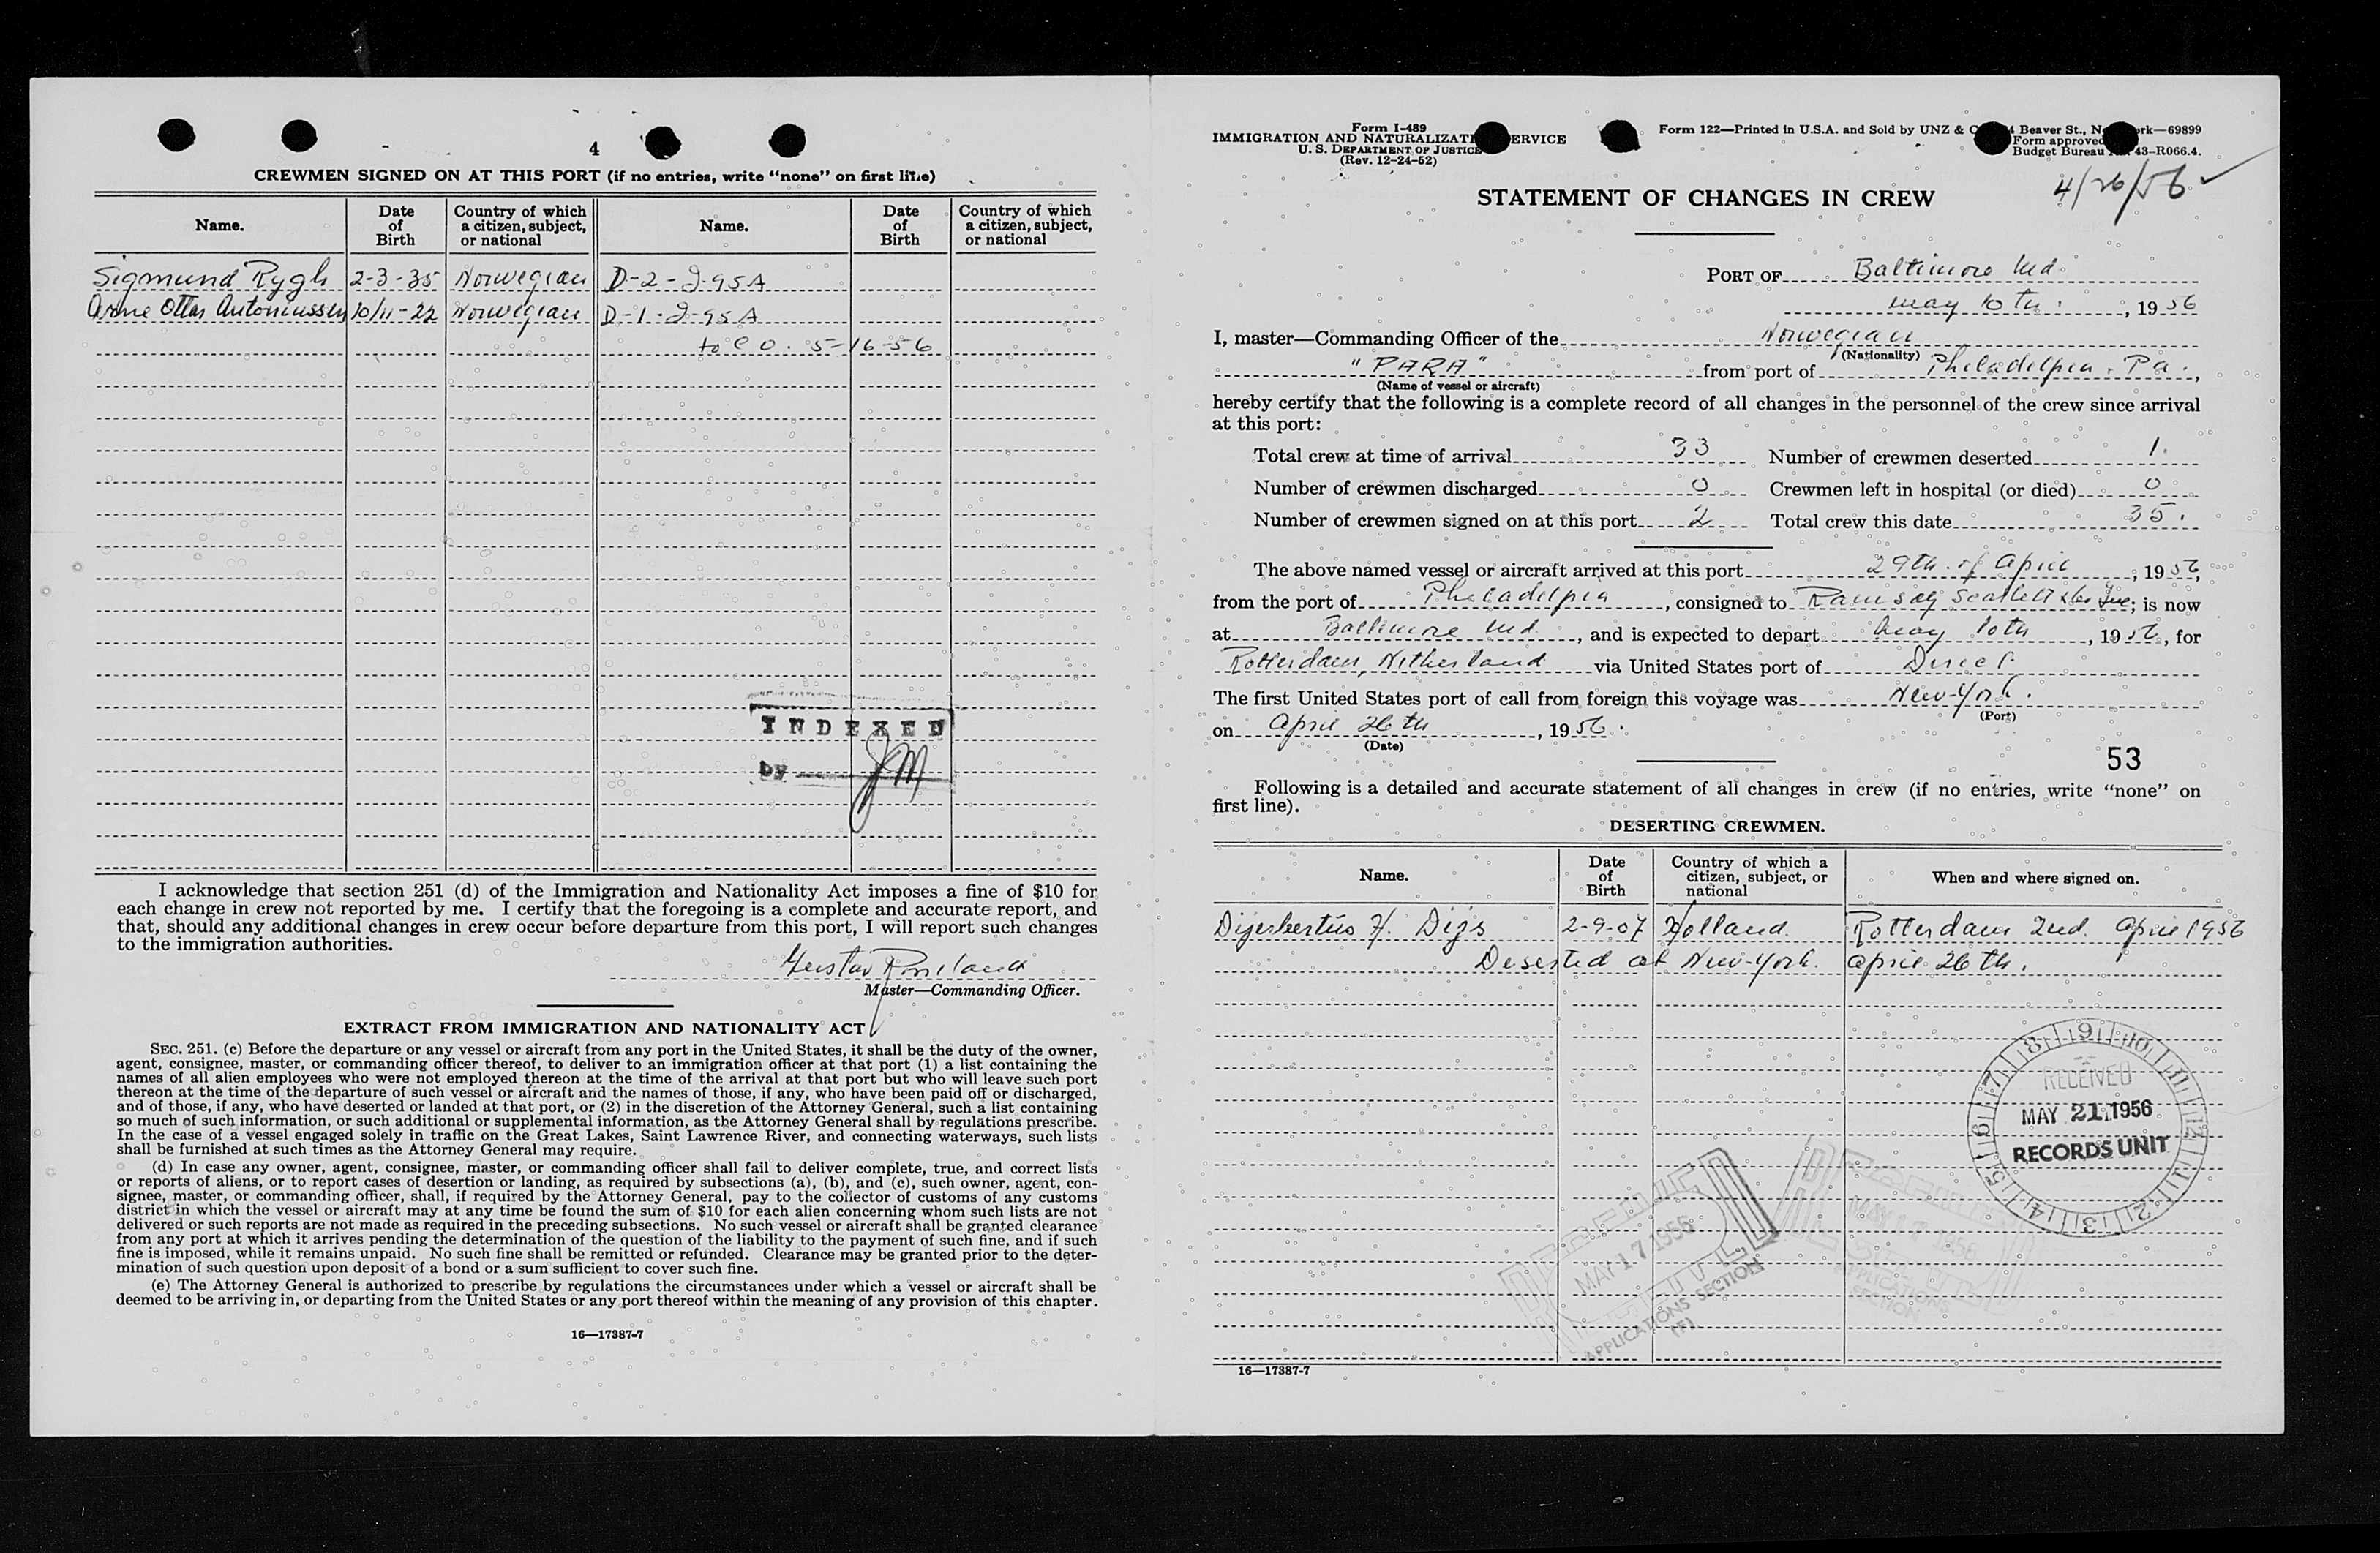 4
CREWMEN SIGNED ON AT THIS PORT (if no entries, write “none” on first line)
Name. Date of Birth Country of which a citizen, subject, or national Name. Date of Birth Country of which a citizen, subject, or national
Sigmund Rygh 2-3-35 Norwegian D-2-I-95A
Arne Ottar Antoniussen 10/11-22 Norwegian D-1-I-95A
to CO. 5-16-56
INDEXED
by JM
I acknowledge that section 251 (d) of the Immigration and Nationality Act imposes a fine of $10 for
each change in crew not reported by me. I certify that the foregoing is a complete and accurate report, and
that, should any additional changes in crew occur before departure from this port, I will report such changes
to the immigration authorities.
Master—Commanding Officer.
EXTRACT FROM IMMIGRATION AND NATIONALITY ACT
SEC. 251. (c) Before the departure or any vessel or aircraft from any port in the United States, it shall be the duty of the owner,
agent, consignee, master, or commanding officer thereof, to deliver to an immigration officer at that port (1) a list containing the
names of all alien employees who were not employed thereon at the time of the arrival at that port but who will leave such port
thereon at the time of the departure of such vessel or aircraft and the names of those, if any, who have been paid off or discharged,
and of those, if any, who have deserted or landed at that port, or (2) in the discretion of the Attorney General, such a list containing
so much of such information, or such additional or supplemental information, as the Attorney General shall by regulations prescribe.
In the case of a vessel engaged solely in traffic on the Great Lakes, Saint Lawrence River, and connecting waterways, such lists
shall be furnished at such times as the Attorney General may require.
(d) In case any owner, agent, consignee, master, or commanding officer shall fail to deliver complete, true, and correct lists
or reports of aliens, or to report cases of desertion or landing, as required by subsections (a), (b), and (c), such owner, agent, con-
signee, master, or commanding officer, shall, if required by the Attorney General, pay to the collector of customs of any customs
district in which the vessel or aircraft may at any time be found the sum of $10 for each alien concerning whom such lists are not
delivered or such reports are not made as required in the preceding subsections. No such vessel or aircraft shall be granted clearance
from any port at which it arrives pending the determination of the question of the liability to the payment of such fine, and if such
fine is imposed, while it remains unpaid. No such fine shall be remitted or refunded. Clearance may be granted prior to the deter-
mination of such question upon deposit of a bond or a sum sufficient to cover such fine.
(e) The Attorney General is authorized to prescribe by regulations the circumstances under which a vessel or aircraft shall be
deemed to be arriving in, or departing from the United States or any port thereof within the meaning of any provision of this chapter.
16—17387-7
Form I-489
IMMIGRATION AND NATURALIZATI ERVICE
U. S. DEPARTMENT OF JUSTICE
(Rev. 12-24-52)
Form 122—Printed in U.S.A. and Sold by UNZ & C Beaver St., N rk—69899
Form approved
Budget Bureau 43-R066.4.
4/26/56 ✓
STATEMENT OF CHANGES IN CREW
PORT OF Baltimore Md.
May 10th, 1956
I, master—Commanding Officer of the Norwegian
(Nationality)
"PARA" from port of Pheladelpia. Pa.,
(Name of vessel or aircraft)
hereby certify that the following is a complete record of all changes in the personnel of the crew since arrival
at this port:
Total crew at time of arrival 33 Number of crewmen deserted 1.
Number of crewmen discharged 0 Crewmen left in hospital (or died) 0
Number of crewmen signed on at this port 2 Total crew this date 35.
The above named vessel or aircraft arrived at this port 29th of April, 1956,
from the port of Pheladelpia, consigned to Ramsay Scarlett & Co Inc; is now
at Baltimore Md., and is expected to depart May 10th, 1956, for
Rotterdam, Nitherland via United States port of Direct.
The first United States port of call from foreign this voyage was New-York.
(Port)
on April 26th, 1956.
(Date)
53
Following is a detailed and accurate statement of all changes in crew (if no entries, write “none” on
first line).
DESERTING CREWMEN.
Name. Date of Birth Country of which a citizen, subject, or national When and where signed on.
H. Digs 2-9-07 Holland. Rotterdam 2nd. April 1956
Deserted at New-York. April 26th.
RECEIVED
MAY 21 1956
RECORDS UNIT
RECEIVED
MAY 17 1956
APPLICATIONS SECTION
(F)
MAY 17 1956
APPLICATIONS
SECTION
16—17387-7